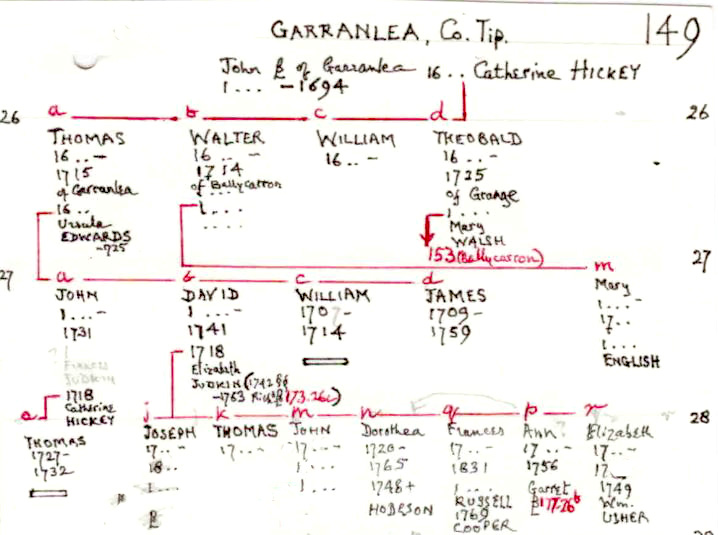 GARRANLEA, Co. Tip.
149
John £ of Garranlea 16 .. Catherine HICKEY
1 ... - 1694
26 a b c d 26
THOMAS WALTER WILLIAM THEOBALD
16 .. - 16 .. - 16 .. - 16 .. -
1715 1714 1725
of Garranlea of Ballycarron of Grange
16 .. 1 .... 1 ....
Ursula ..... Mary
EDWARDS WALSH
-725 153 (Ballycarron) 27
27 a b c d m
JOHN DAVID WILLIAM JAMES Mary
1 ... - 1 ... - 1707 - 1709 - 1 ... -
1731 1741 1714 1759 17 ..
1718 1 ...
FRANCES Elizabeth ENGLISH
JUDKIN JUDKIN (1742 §§
1718 -1763 173.26c)
Catherine
HICKEY
e j k m n q p r 28
THOMAS JOSEPH THOMAS JOHN Dorothea Frances Ann Elizabeth
1727- 17 .. - 17 ... 17 ... - 1720 - 17 .. - 17 .. - 17 .. -
1732 18 .. 1 ... 1765 1831 1756 17
1 ... 1 ... 1748+ 1 .... Garret 1749
£ HODGSON RUSSELL £ 177.26b Wm.
1769 USHER
COOPER